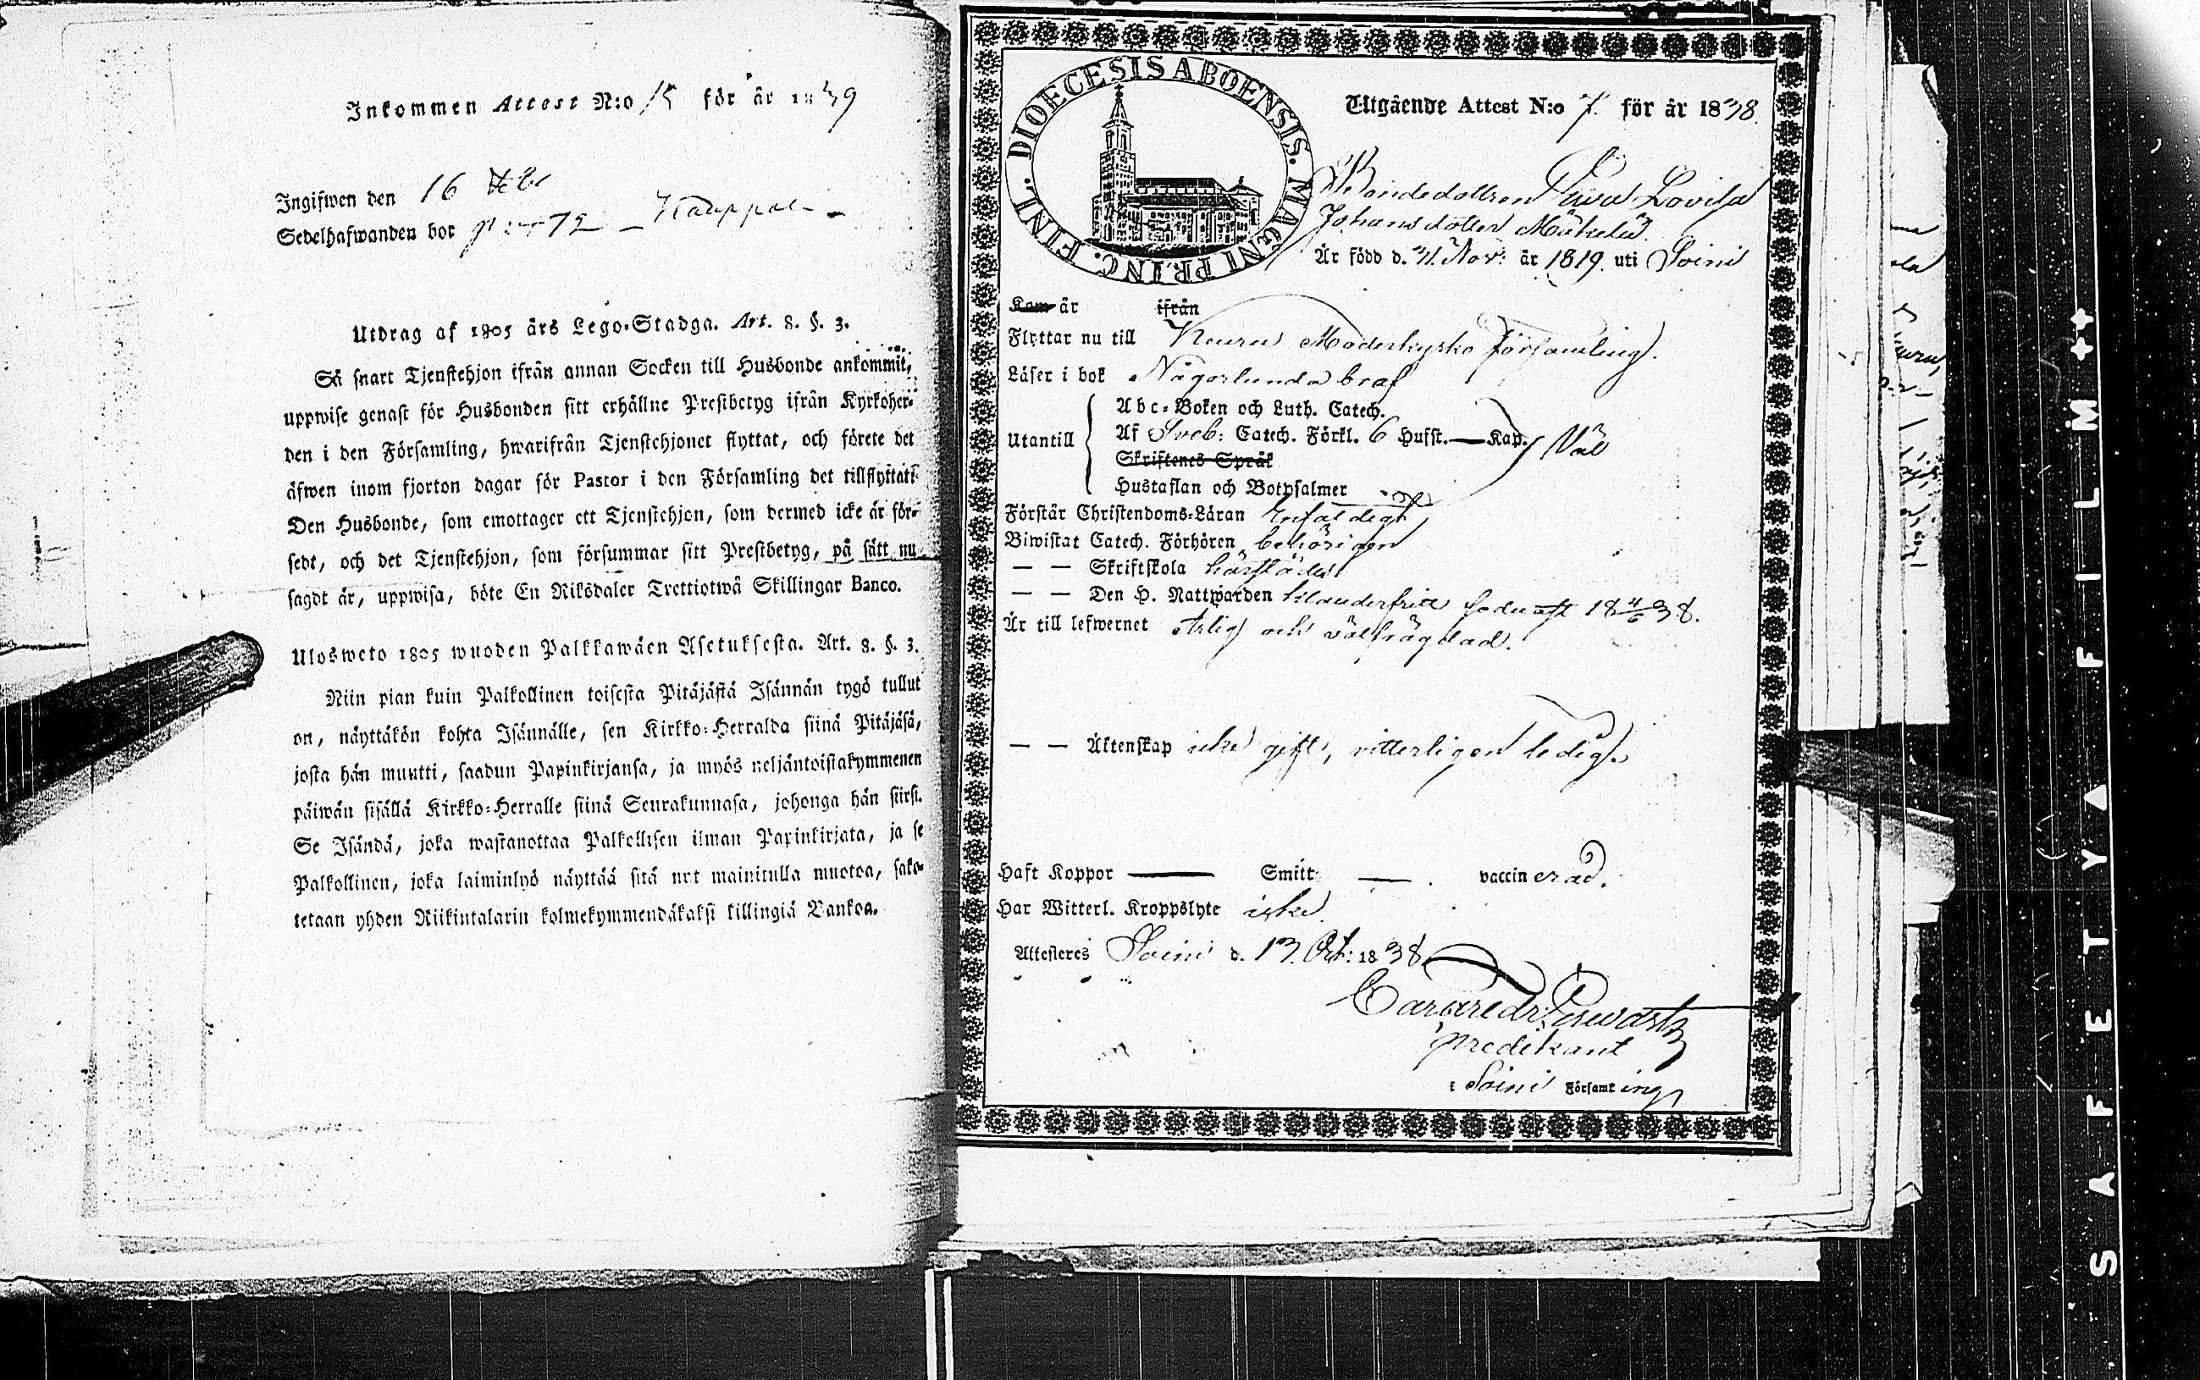 Inkommen Attest N:o 15 för år 1839
Ingifwen den 16
Sedelhafwanden bor
Utdrag af 1805 års Lego-Stadga. Art. 8. §. 3.
Så snart Tjenstehjon ifrån annan Socken till Husbonde ankommit,
uppwise genast för Husbonden sitt erhållne Prestbetyg ifrån Kyrkoher-
den i den Församling, hwarifrån Tjenstehjonet flyttat, och förete det
äfwen inom fjorton dagar för Pastor i den Församling det tillflyttat.
Den Husbonde, som emottager ett Tjenstehjon, som dermed icke är för-
sedt, och det Tjenstehjon, som försummar sitt Prestbetyg, på sätt nu
sagdt är, uppwisa, böte En Riksdaler Trettiotwå Skillingar Banco.
Ulosweto 1805 wuoden Palkkawäen Asetuksesta. Art. 8. §. 3.
Niin pian kuin Palkollinen toisesta Pitäjästä Isännän tygö tullut
on, näyttäkön kohta Isännälle, sen Kirkko-Herralda siinä Pitäjäsä,
josta hän muutti, saadun Papinkirjansa, ja myös neljäntoistakymmenen
päiwän sisällä Kirkko-Herralle siinä Seurakunnasa, johonga hän siirsi.
Se Isändä, joka wastanottaa Palkollisen ilman Papinkirjata, ja se
Palkollinen, joka laiminlyö näyttää sitä nyt mainitulla muotoa, sako-
tetaan yhden Riikintalarin kolmekymmendäkaksi killingiä Bankoa.
DIOECESIS ABOENSIS. MAGNI PRINC. FINL.
Utgående Attest N:o 7. för år 1838.
Bondedottren Eva Lovisa
Johansdotter Mäkelä.
Är född d. 21. Nov: år 1819. uti Soini
Kom år ifrån
Flyttar nu till Keuru Moderkyrko församling.
Läser i bok Någorlunda braf
Abc-Boken och Luth. Catech.
Utantill Af Sveb: Catech. Förkl. 6 Hufst. — Kap. Väl
Skriftenes Språk
Hustaflan och Botpsalmer
Förstår Christendoms-Läran Enfaldigt
Biwistat Catech. Förhören behörigen
— — Skriftskola härstädes
— — Den H. Nattwarden klanderfritt sednast 18 4/6 38.
Är till lefwernet ärlig och välfrägdad.
— — Äktenskap icke gift, vitterligen ledig.
Haft Koppor — Smitt: — . vaccinerad.
Har Witterl. Kroppslyte icke.
Attesteres Soini d. 13. Oct: 1838.
predikant
i Soini Församling
SAFETY FILM